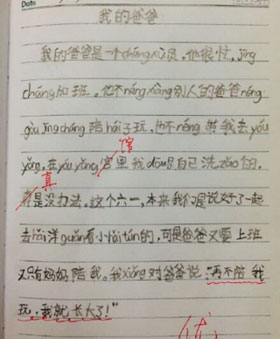 Date
我的爸爸
我的爸爸是一个cháng员,他很忙,jīng
cháng加班。他不néng xiàng别人的爸爸néng
gòu jīng cháng陪hái子玩,也不néng带我去yóu
yǒng。在yóu yǒng宫里我dōu是自己洗zǎo的,
馆
真
真是没办法。这个六一,本来我们说好了一起
去hǎi洋guǎn看小hǎi tún的,可是爸爸又要上班
又只有妈妈陪我。我xiǎng对爸爸说:“再不陪我
玩,我就长大了!”
优